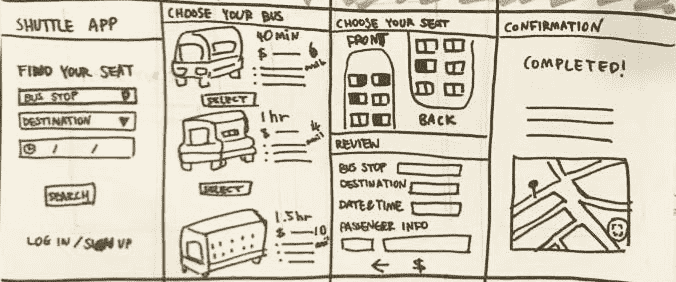 SHUTTLE APP
FIND YOUR SEAT
BUS STOP
DESTINATION
/ /
SEARCH
LOG IN / SIGN UP
CHOOSE YOUR BUS
40 min
$ 6
avail
SELECT
1 hr
$
avail
SELECT
1.5 hr
$ 10
avail
CHOOSE YOUR SEAT
FRONT
BACK
REVIEW
BUS STOP
DESTINATION
DATE & TIME
PASSENGER INFO
← $
CONFIRMATION
COMPLETED!